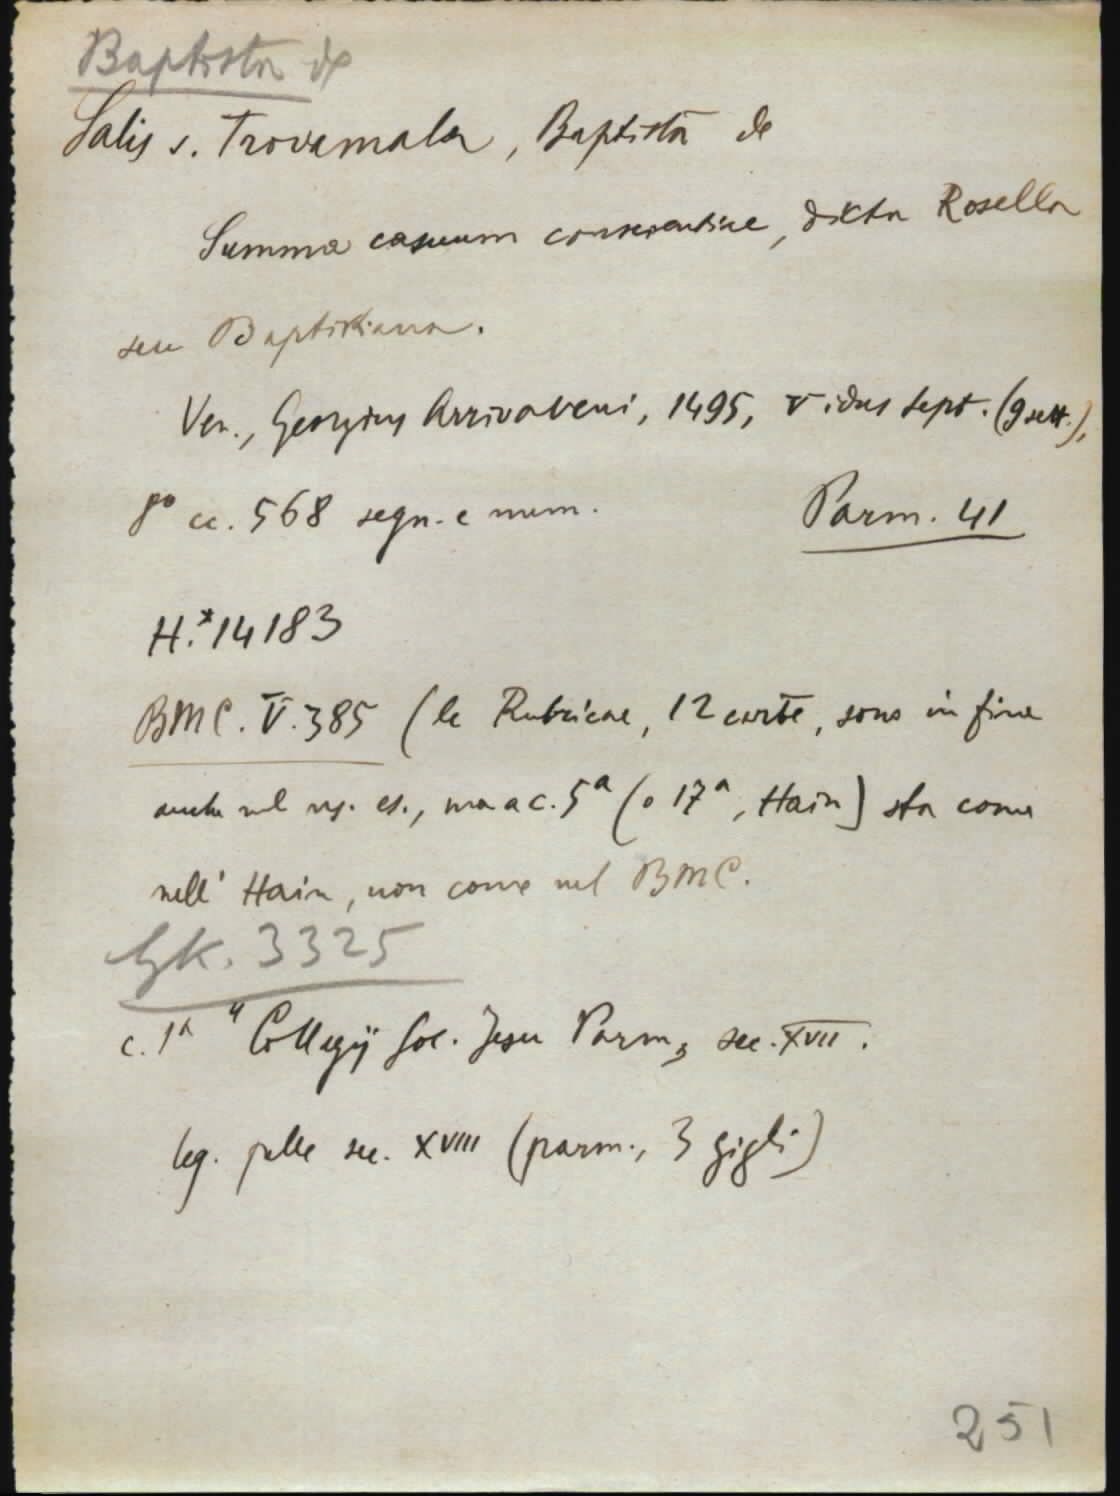 Baptista de
Salis s. Trovamala, Baptista de
Summa casuum conscientiae, dicta Rosella
seu Baptistiana.
Ven., Georgius Arrivabeni, 1495, V idus sept. (9 sett.),
8° cc. 568 segn. e num.
Parm. 41
H.*14183
BMC. V. 385 (le Rubricae, 12 carte, sono in fine
anche nel ns. es., ma a c. 5ª (o 17ª, Hain) sta come
nell' Hain, non come nel BMC.
GK. 3325
c. 1ª "Collegij Soc. Jesu Parm., sec. XVII.
leg. pelle sec. XVIII (parm., 3 gigli)
251